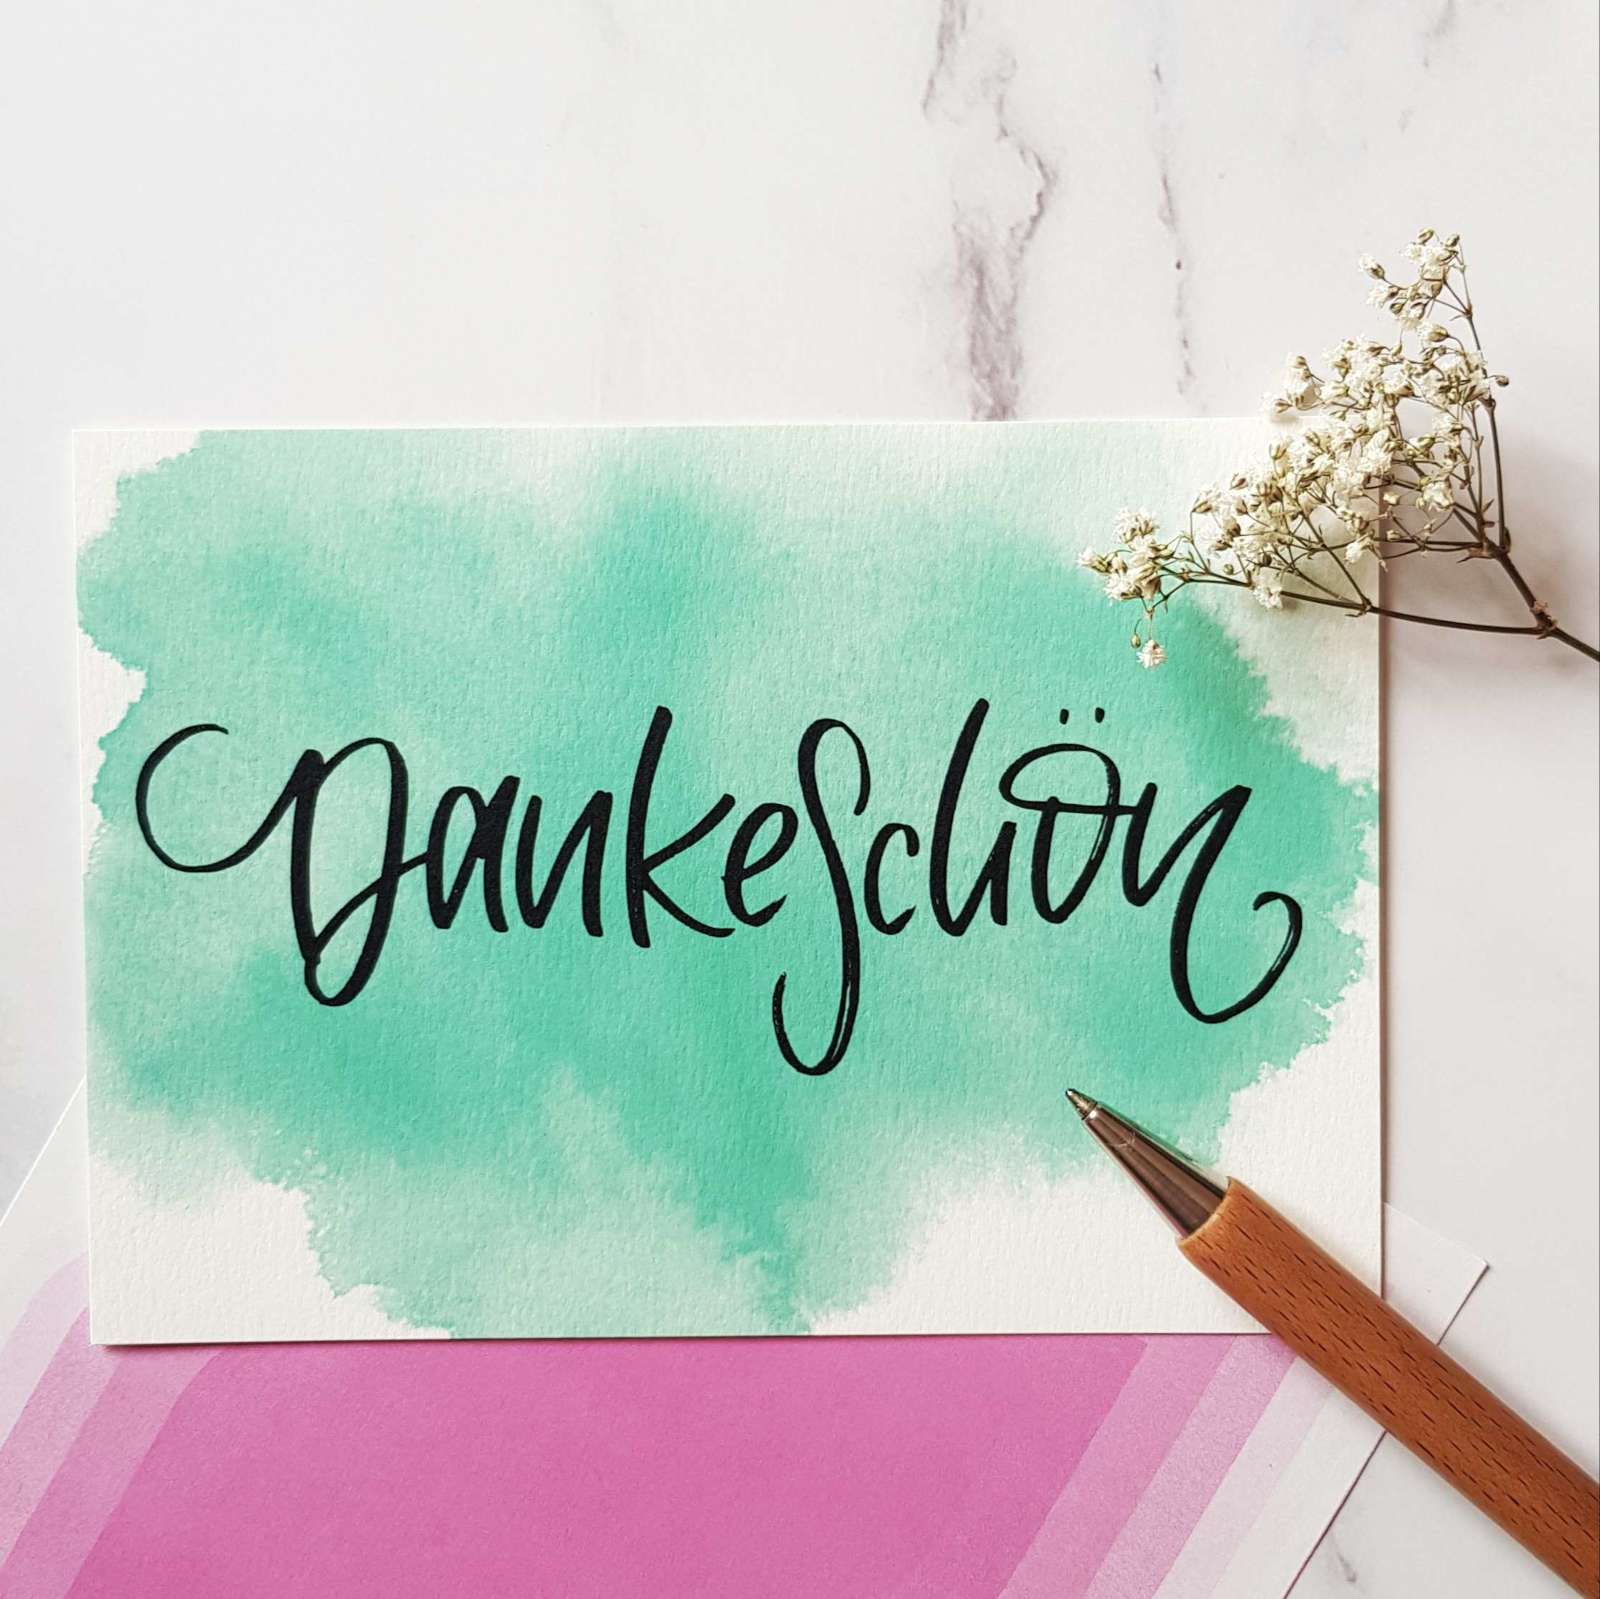 Dankeschön